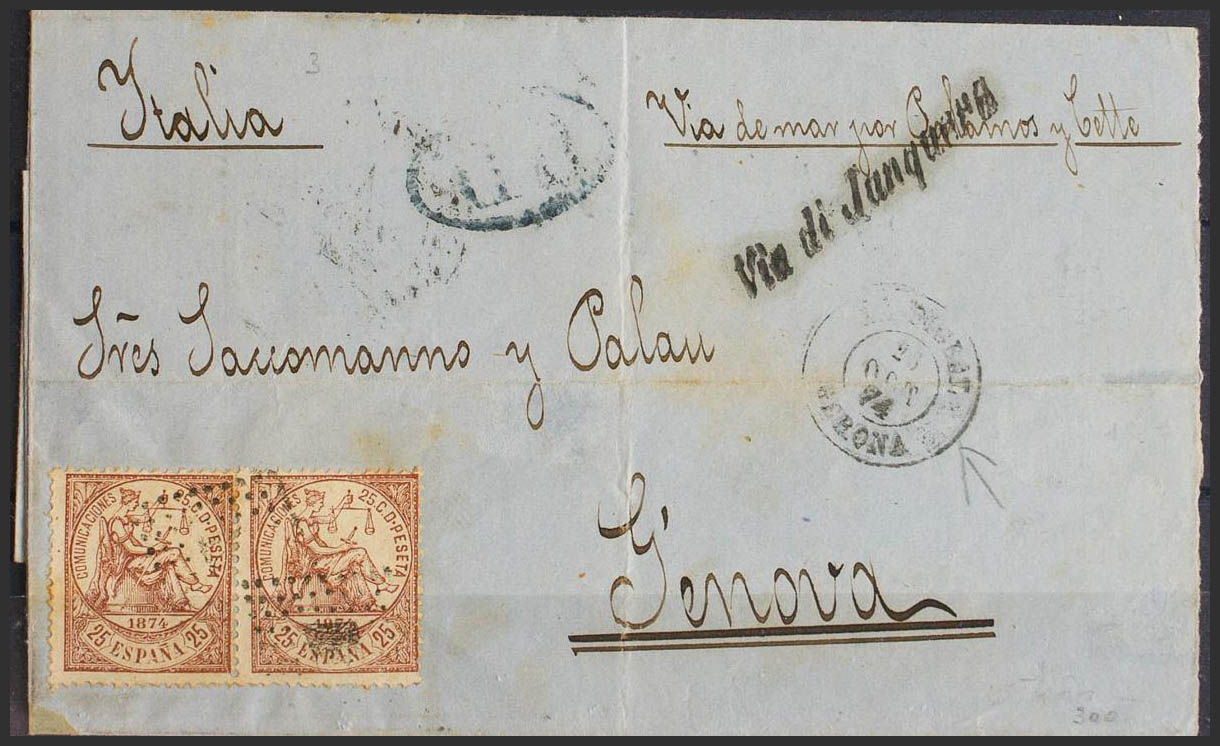 Italia
3
P.D.
Via de mar por Palamos y Cette
Via di Junquera
Sres Saccomanno y Palau
25 OCT 74
GERONA
Genova
COMUNICACIONES 25 C. D PESETA
1874
25 ESPAÑA 25
COMUNICACIONES 25 C. D PESETA
1874
25 ESPAÑA 25
300